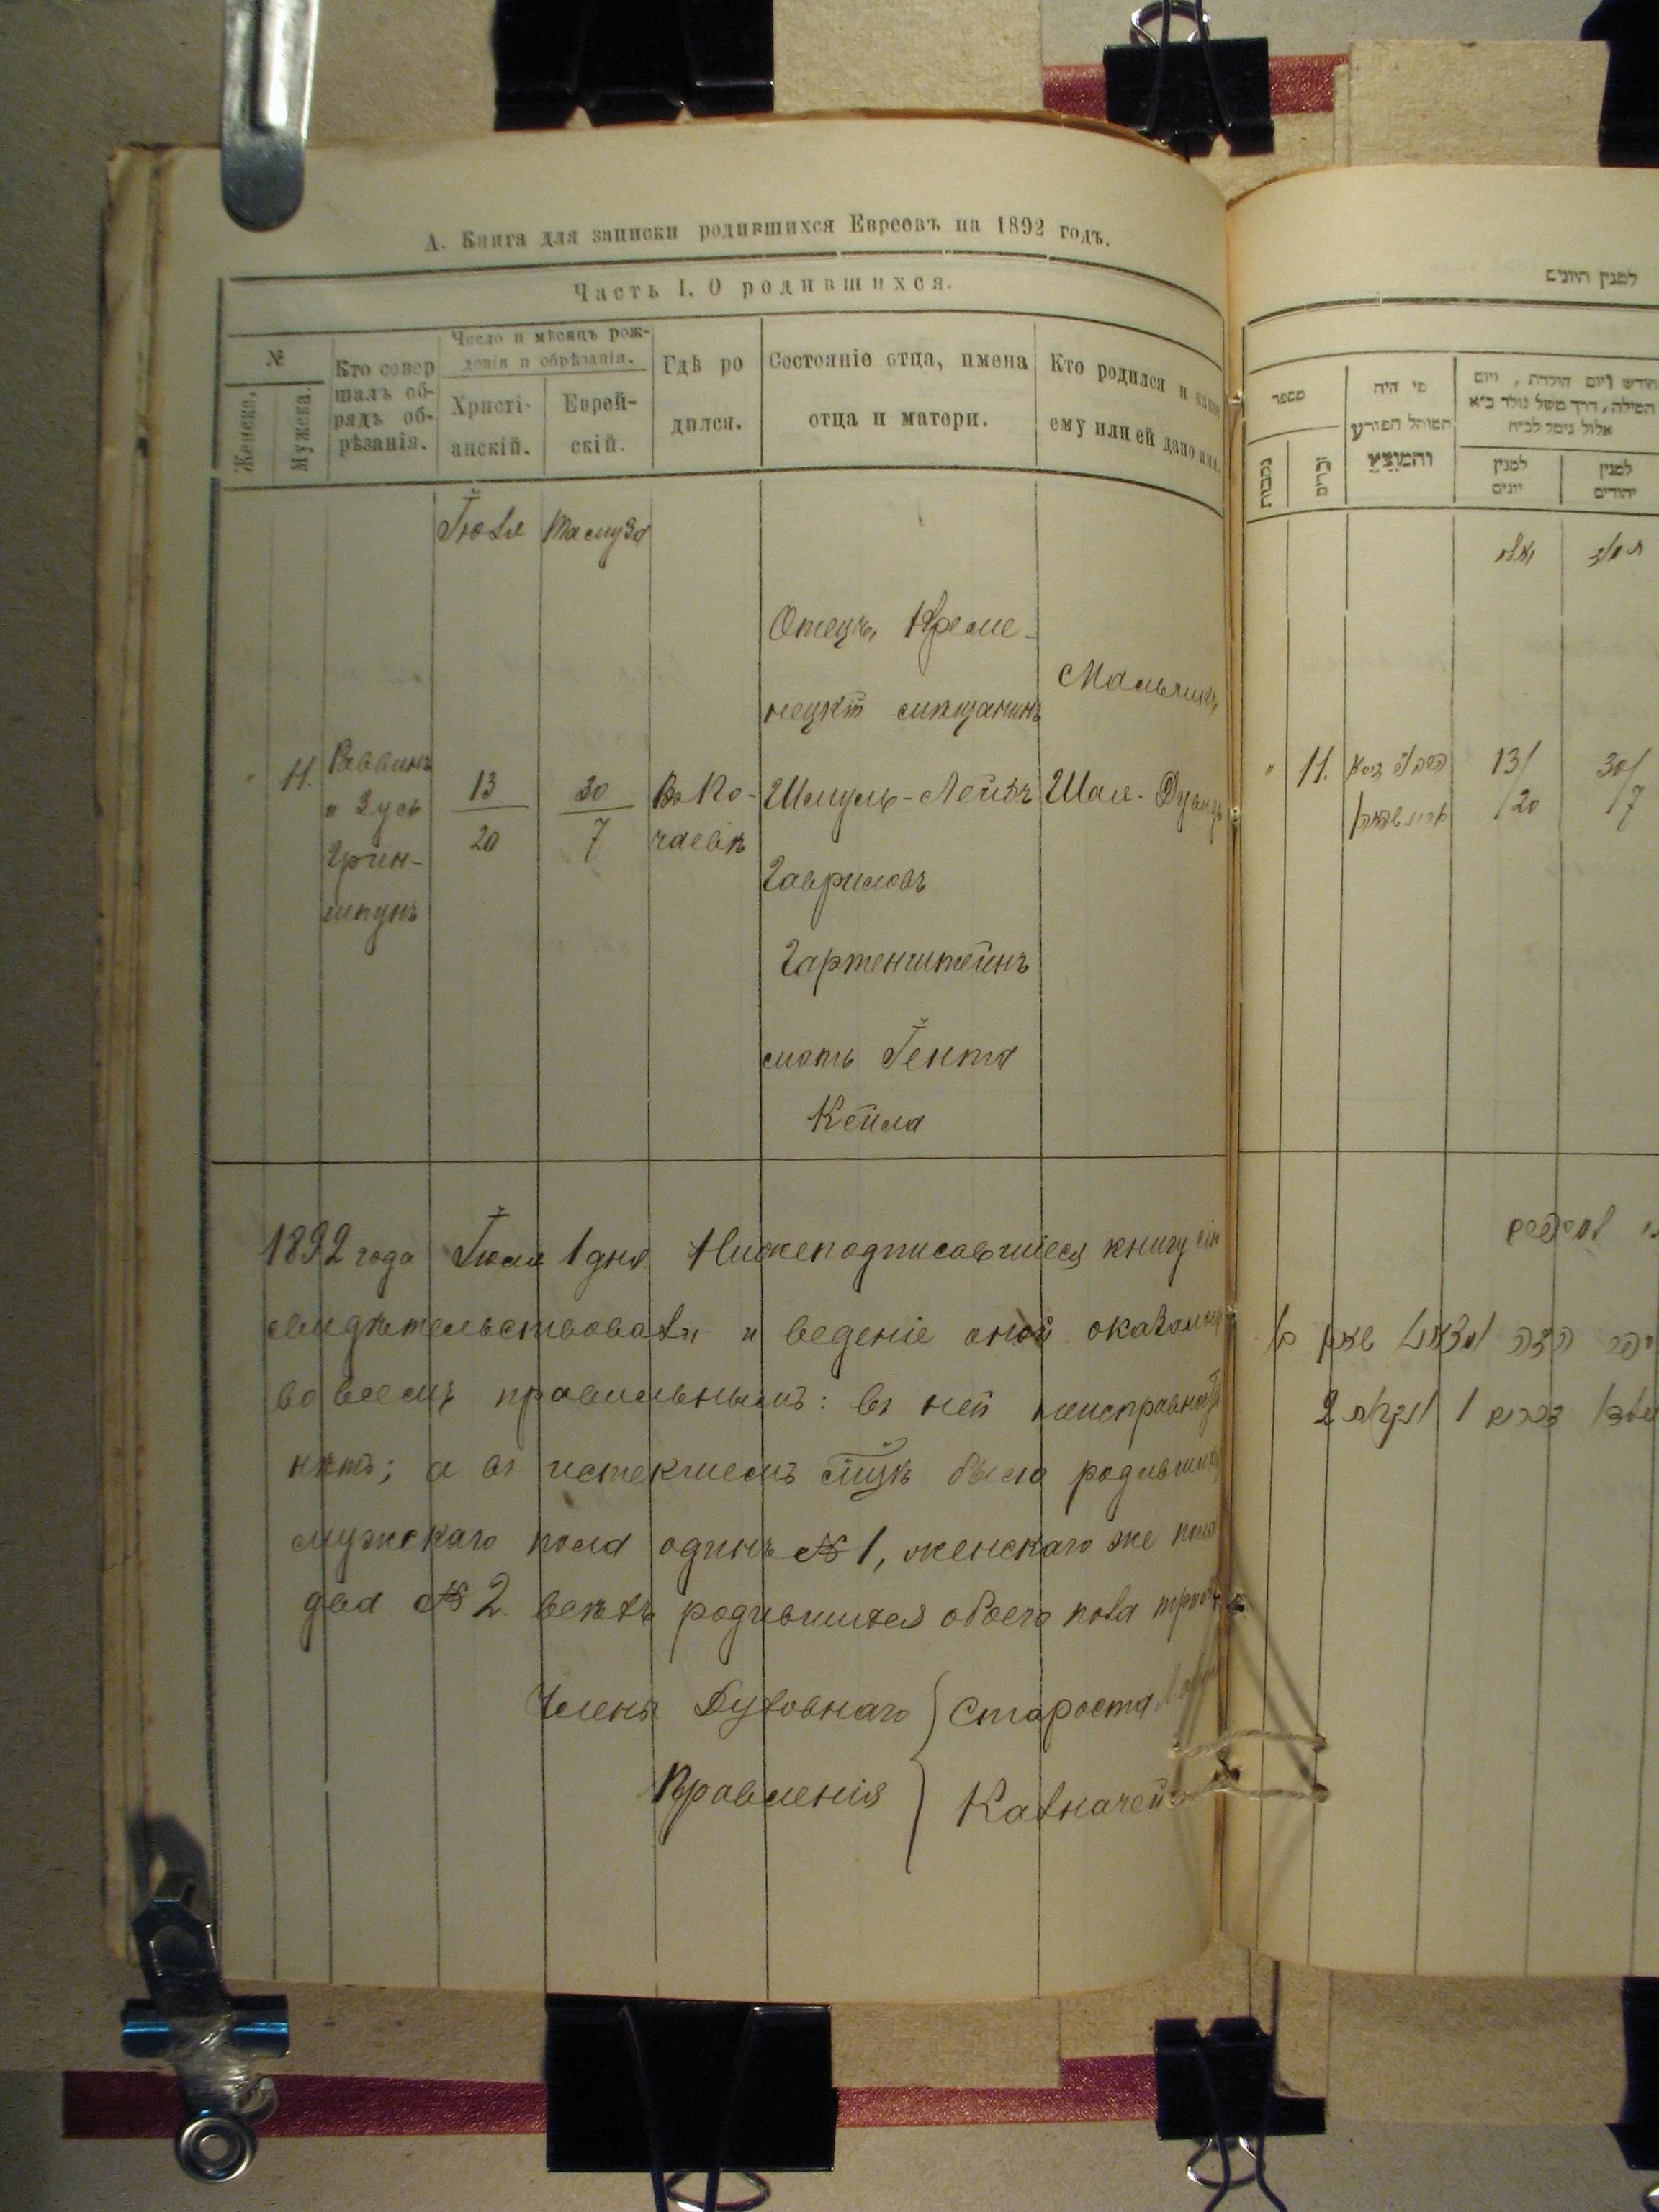 А. Книга для записки родившихся Евреевъ на 1892 годъ.
Часть I. О родившихся.
№
Женска.
Мужеска.
Кто совер
шалъ об-
рядъ об-
рѣзанія.
Число и мѣсяцъ рож-
денія и обрѣзанія.
Христі-
анскій.
Еврей-
скій.
Гдѣ ро
дился.
Состояніе отца, имена
отца и матери.
Кто родился и какое
ему или ей дано имя.
Іюля
Тамуза
11.
Раввинъ
и Зусь
Грин-
шпунъ
13
20
30
7
Въ По-
чаевѣ
Отецъ, Креме-
нецкій мѣщанинъ
Шмуль-Лейбъ
Гавриловъ
Гартенштейнъ
мать Гента
Кейла
Мальчикъ
Шая-
1892 года Іюля 1 дня Нижеподписавшіеся книгу сію
свидѣтельствовали и веденіе оной оказалось
во всемъ правильнымъ: въ ней неисправностей
нѣтъ; а въ истекшемъ мцѣ было родившихся
мужскаго пола одинъ № 1, женскаго же пола
два № 2. всѣхъ родившихся обоего пола трое
Члены Духовнаго
Правленія
Староста
Казначей
למנין היונים
מספר
נקבות
זכרים
מי היה
המוהל הפורע
והמוצץ
חודש ויום הולדת, ויום
המילה, דרך משל נולד כ״א
אלול נימל לכ״ח
למנין
יונים
למנין
יהודים
יולי
תמוז
11.
13/
/20
30/
/7